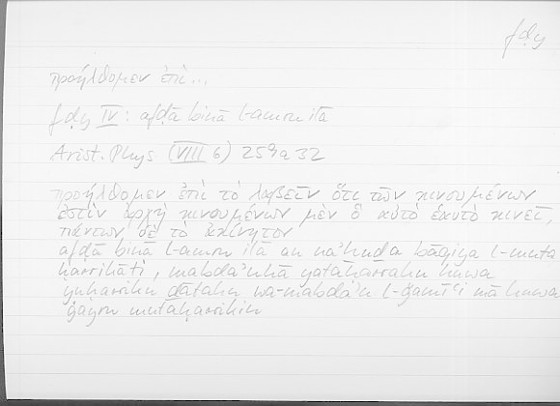 fḍy
προήλθομεν ἐπὶ...
fḍy IV: afḍā binā l-amru ilā
Arist. Phys (VIII 6) 259a32
προήλθομεν ἐπὶ τὸ λαβεῖν ὅτι τῶν κινουμένων
ἐστὶν ἀρχὴ κινουμένων μὲν ὃ αὐτὸ ἑαυτὸ κινεῖ,
πάντων δὲ τὸ ἀκίνητον
afḍā binā l-amru ilā an naʾḫuḏa bāqiya l-muta
ḥarrikāti, mabdaʾuhā yataḥarraku huwa
yuḥarriku ḏātahu wa-mabdaʾu l-ǧamīʿi mā huwa
ġayru mutaḥarrikin